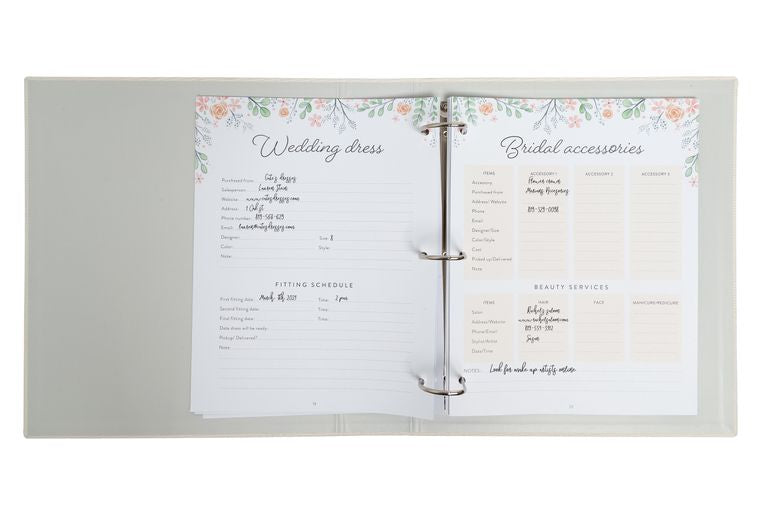 Wedding dress
Purchased from: Cute's dresses
Salesperson: Lauren Stain
Website: www.cutesdresses.com
Address: 1 Oak st
Phone number: 819-568-629
Email: lauren@cutesdresses.com
Designer: Size: 8
Color: Style:
Note:
FITTING SCHEDULE
First fitting date: March 8th, 2021 Time: 2 pm
Second fitting date: Time:
Final fitting date: Time:
Date dress will be ready:
Pickup/ Delivered?
Note:
Bridal accessories
ITEMS ACCESSORY 1 ACCESSORY 2 ACCESSORY 3
Accessory Flower crown
Purchased from
Address/ Website
Phone 819-529-0098
Email
Designer/Size
Color/Style
Cost
Picked up/Delivered
Note
BEAUTY SERVICES
ITEMS HAIR FACE MANICURE/PEDICURE
Salon Rachel's saloon
Address/Website www.rachelsaloon.com
Phone/Email 819-555-3912
Stylist/Artist Susan
Date/Time
NOTES: Look for make up artists online